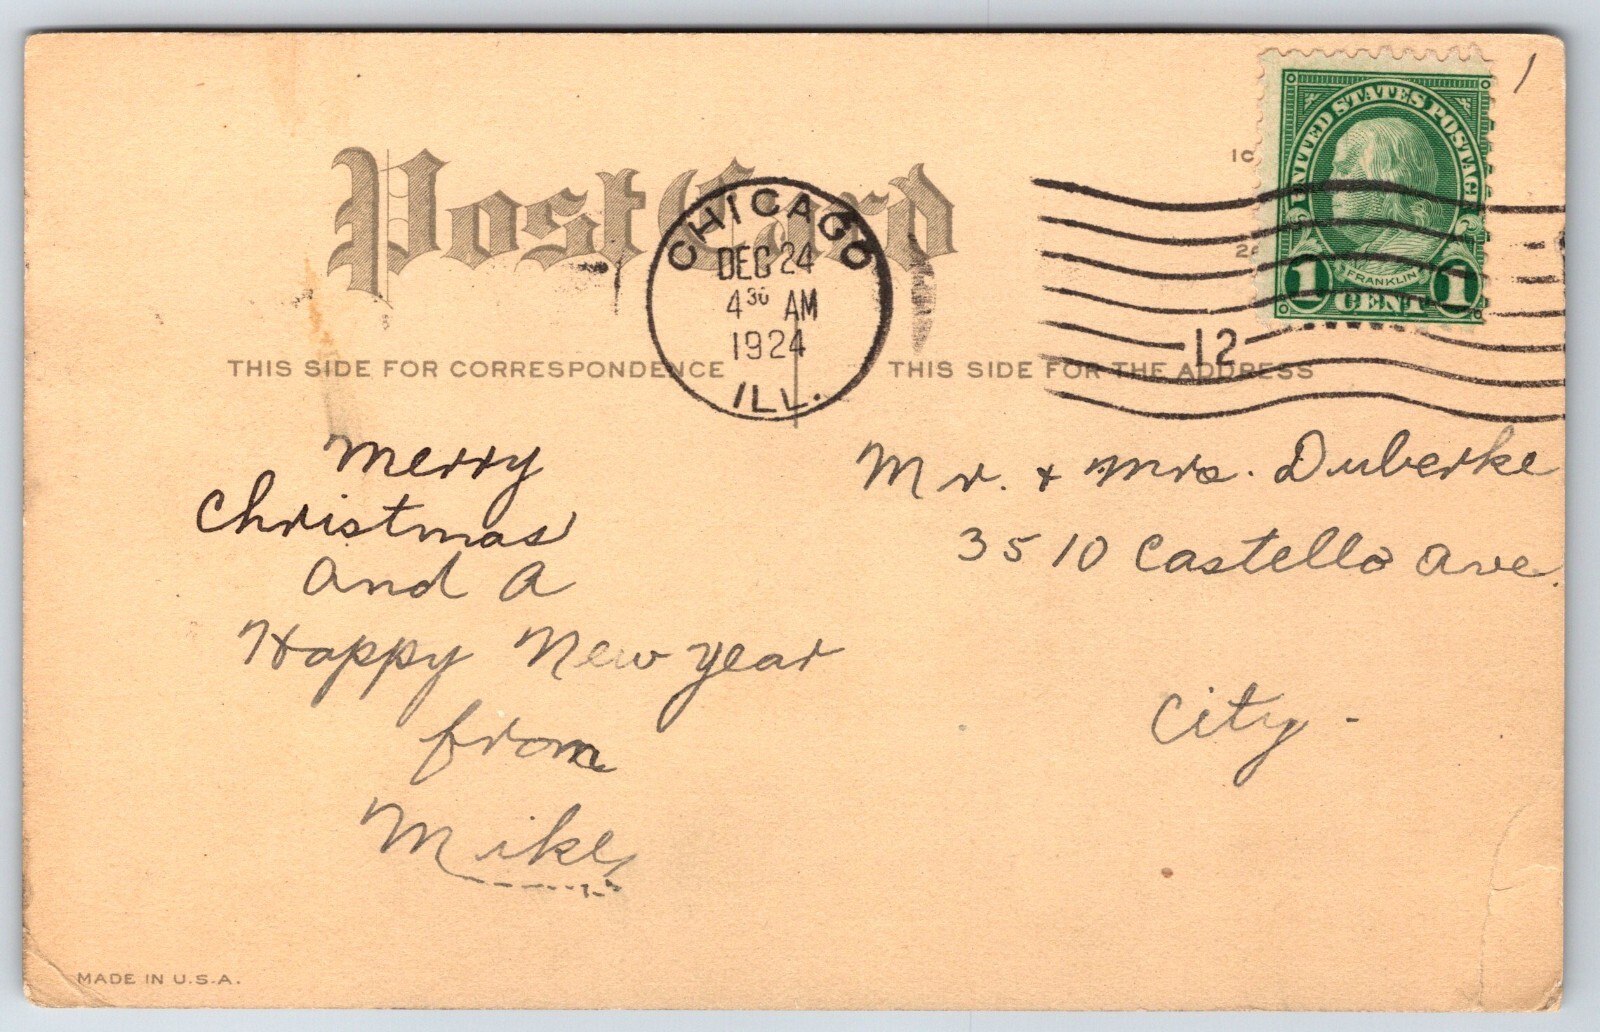 Post Card
CHICAGO
DEC 24
4 30 AM
1924
ILL.
UNITED STATES POSTAGE
FRANKLIN
1 CENT 1
12
THIS SIDE FOR CORRESPONDENCE
THIS SIDE FOR THE ADDRESS
Merry
Christmas
and a
Happy New Year
from
Mike
Mr. + Mrs. Duberke
3510 Castello Ave.
City -
MADE IN U.S.A.